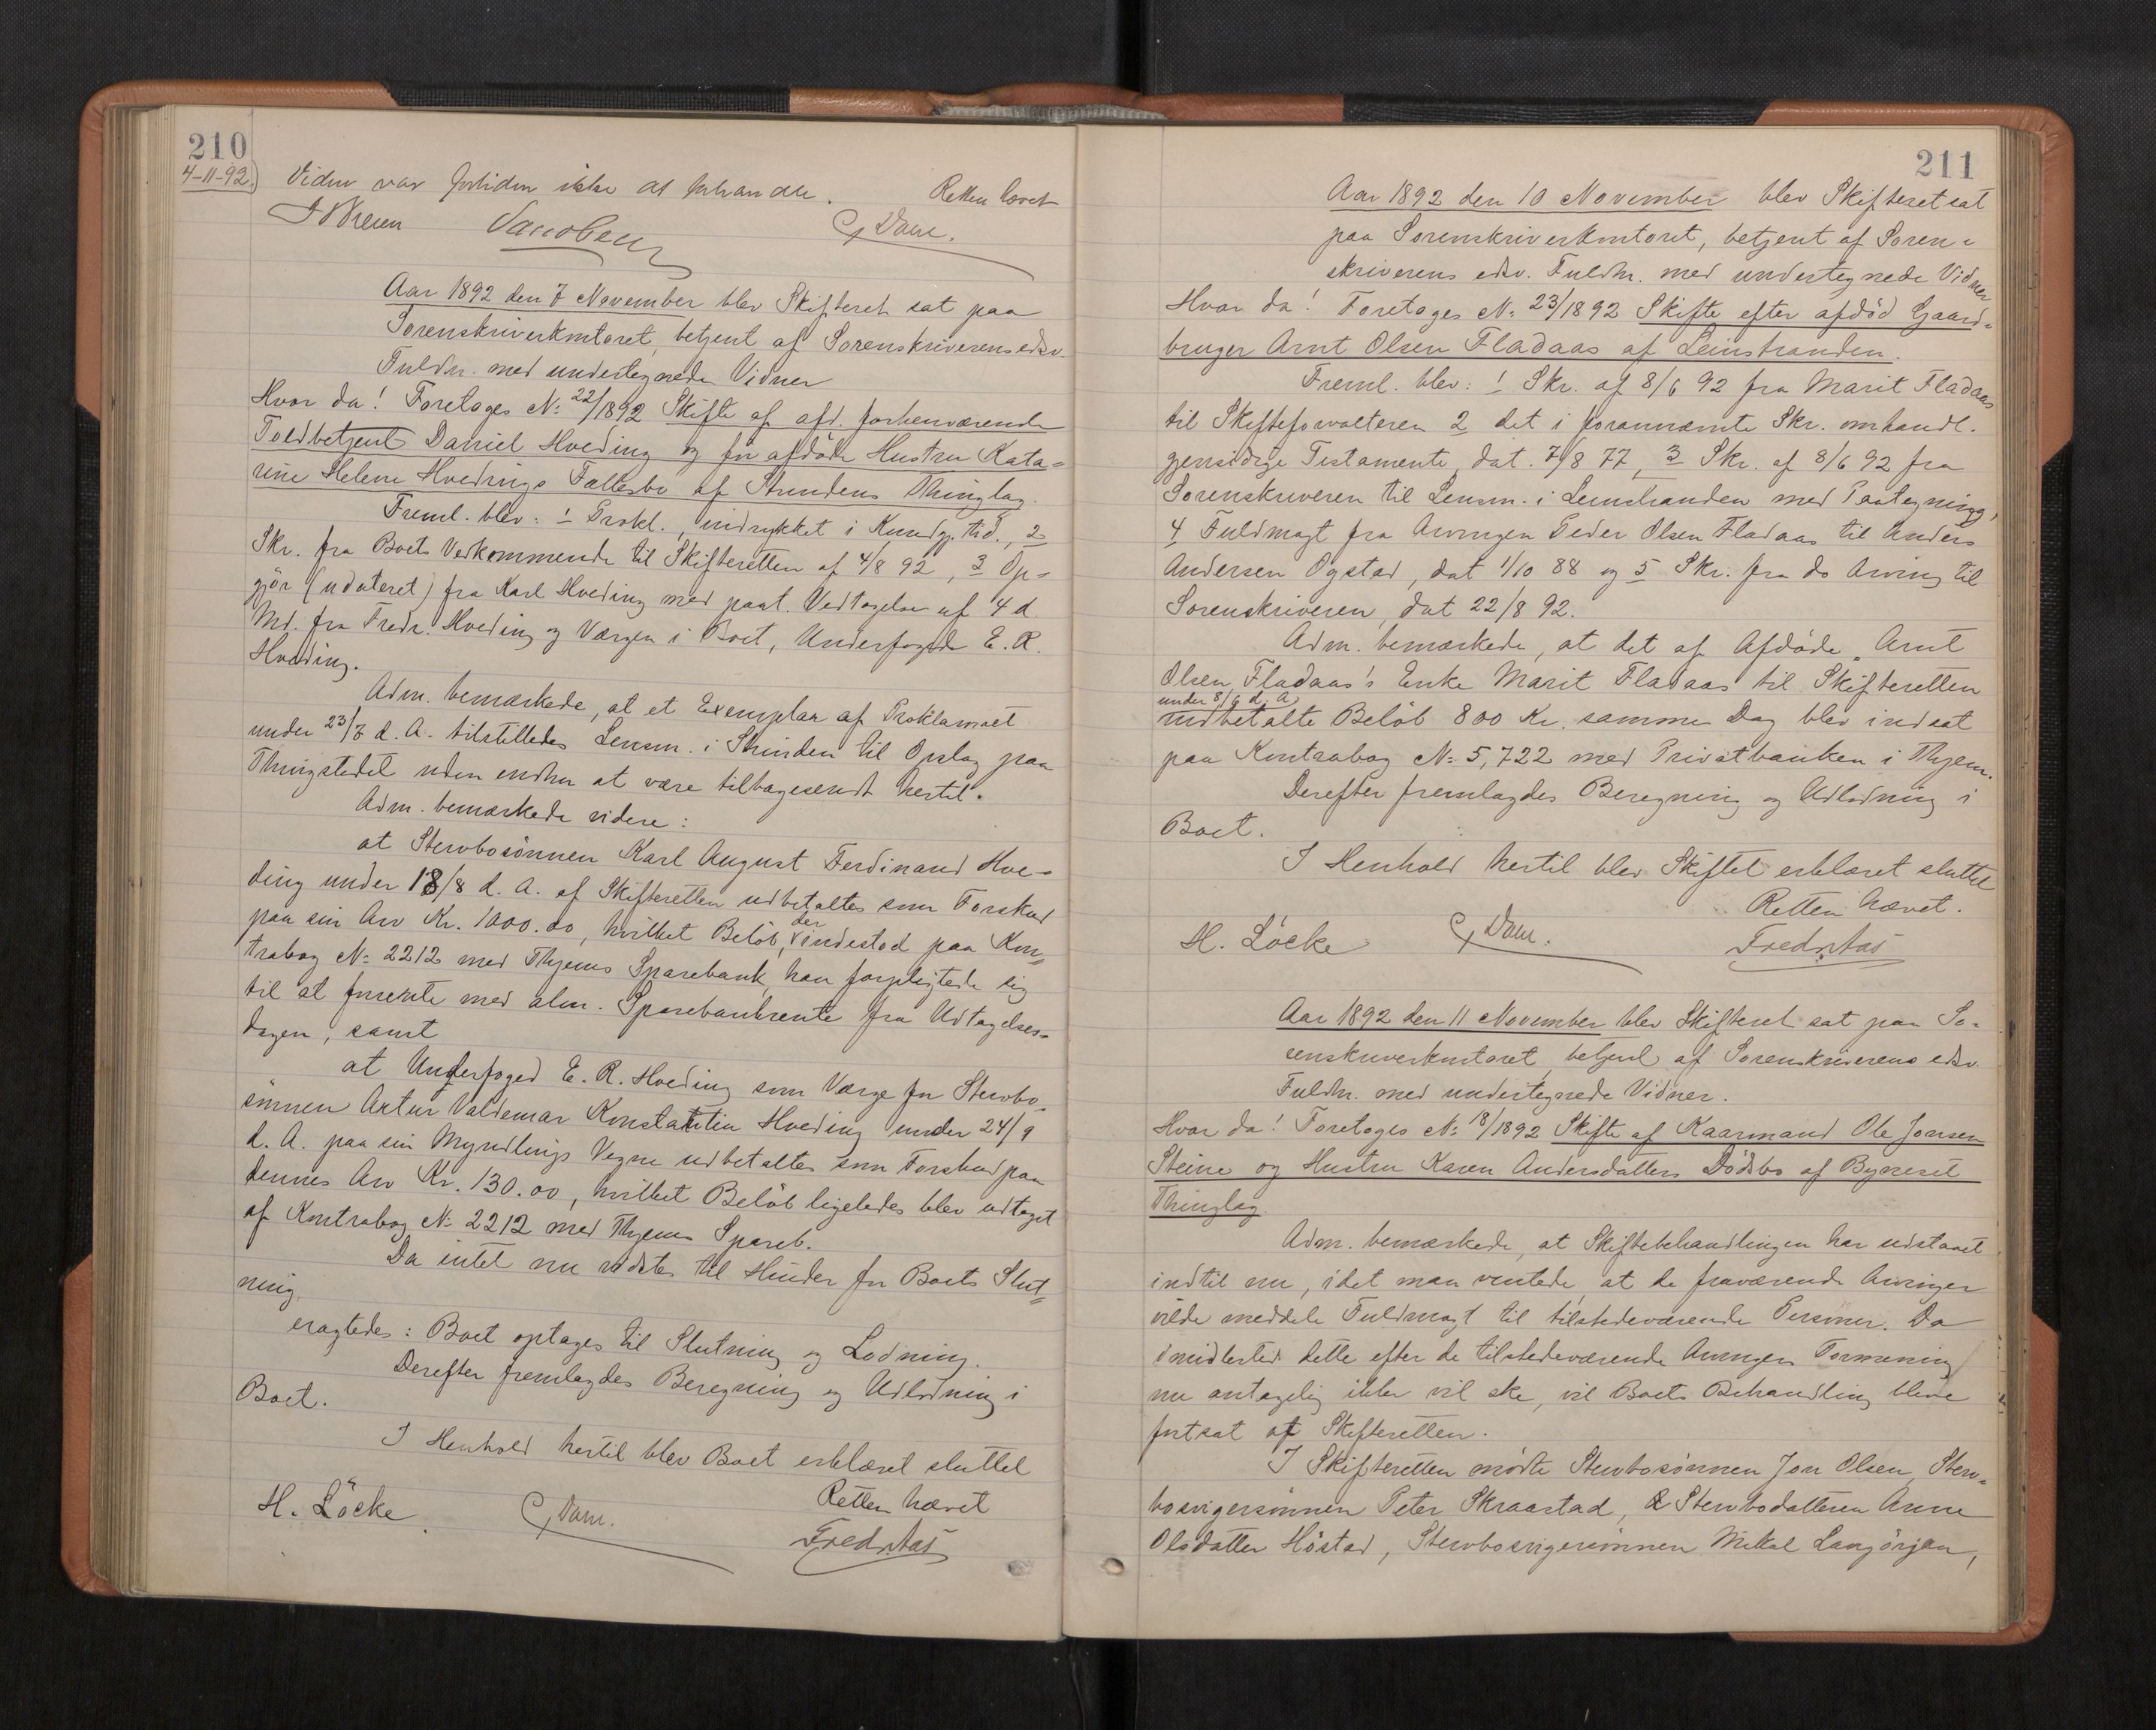 210
4-11-92.)
Videre var forliden ikke at behandle. Retten hævet
C Dam.
Aar 1892 den 7 November blev Skifteret sat paa
Sorenskriverkontoret, betjent af Sorenskriverens edsv.
Fuldm. med undertegnede Vidner
Hvor da! Foretoges No 22/1892 Skifte af afd. forhenværende
Toldbetjent Daniel Hveding og før afdöde Hustru Kata=
rine Helene Hvedings Fællesbo af Strindens Thinglag.
Freml. blev: 1 Prokl., indrykket i Kundgj. tid., 2
Skr. fra Boets Vedkommende til Skifteretten af 4/8 92, 3 Op=
gjör (udateret) fra Karl Hveding med paat. Vedtagelse af 4 d.
Md. fra Fredr. Hveding og Værgen i Boet, Underfoged E. R.
Hveding.
Adm. bemærkede, at et Exemplar af Proklamaet
under 23/7 d. A. tilstilledes Lensm. i Strinden til Opslag paa
Thingstedet uden endnu at være tilbagesendt hertil.
Adm. bemærkede videre:
at Stervbosönnen Karl August Ferdinand Hve=
ding under 18/8 d. A. af Skifteretten udbetaltes som Forskud
paa sin Arv Kr. 1000.00, hvilket Belöb, der indestod paa Kon=
trabog No 2212 med Thjems Sparebank, han forpligtede sig
til at forrente med alm. Sparebankrente fra Udtagelses=
dagen, samt
at Underfoged E. R. Hveding som Værge for Stervbo=
sönnen Artur Valdemar Konstantin Hveding under 24/9
d. A. paa sin Myndlings Vegne udbetaltes som Forskud paa
dennes Arv Kr. 130.00, hvilket Belöb ligeledes blev udtaget
af Kontrabog No 2212 med Thjems Spareb.
Da intet nu vidstes til Hinder for Boets Slut=
ning,
eragtedes: Boet optages til Slutning og Lodning.
Derefter fremlagdes Beregning og Udlodning i
Boet.
I Henhold hertil blev Boet erklæret sluttet
Retten hævet
H. Löcke C Dam.
211
Aar 1892 den 10 November blev Skifteret sat
paa Sorenskriverkontoret, betjent af Soren=
skriverens edsv. Fuldm. med undertegnede Vidner
Hvor da! Foretoges No 23/1892 Skifte efter afdöd Gaard=
bruger Arnt Olsen Fladaas af Leinstranden.
Freml. blev: 1 Skr. af 8/6 92 fra Marit Fladaas
til Skifteforvalteren 2 det i forannævnte Skr. omhandl.
gjensidige Testamente, dat. 7/8 77, 3 Skr. af 8/6 92 fra
Sorenskriveren til Lensm. i Leinstranden med Paategning,
4 Fuldmagt fra Arvingen Peder Olsen Fladaas til Anders
Andersen Ogstad, dat 1/10 88 og 5 Skr. fra do Arving til
Sorenskriveren, dat 22/8 92.
Adm. bemærkede, at det af Afdöde Arnt
Olsen Fladaas's Enke Marit Fladaas til Skifteretten
under 8/6 d. A.
indbetalte Belöb 800 Kr. samme Dag blev indsat
paa Kontrabog No 5,722 med Privatbanken i Thjem.
Derefter fremlagdes Beregning og Udlodning i
Boet.
I Henhold hertil blev Skiftet erklæret sluttet
Retten hævet.
H. Löcke C Dam.
Aar 1892 den 11 November blev Skifteret sat paa So=
renskriverkontoret, betjent af Sorenskriverens edsv.
Fuldm. med undertegnede Vidner.
Hvor da! Foretoges No 18/1892 Skifte af Kaarmand Ole Jonsen
Steine og Hustru Karen Andersdatters Dödsbo af Bynesset
Thinglag.
Adm. bemærkede, at Skiftebehandlingen har udstaaet
indtil nu, idet man ventede, at de fraværende Arvinger
vilde meddele Fuldmagt til tilstedeværende Personer. Da
imidlertid dette efter de tilstedeværende Arvingers Formening
nu antagelig ikke vil ske, vil Boets Behandling blive
fortsat af Skifteretten.
I Skifteretten mödte Stervbosönnen Jon Olsen, Sterv=
bosvigersönnen Peter Skraastad, Stervbodatteren Anne
Olsdatter Höstad, Stervbosvigersönnen Mikal Langörjen,